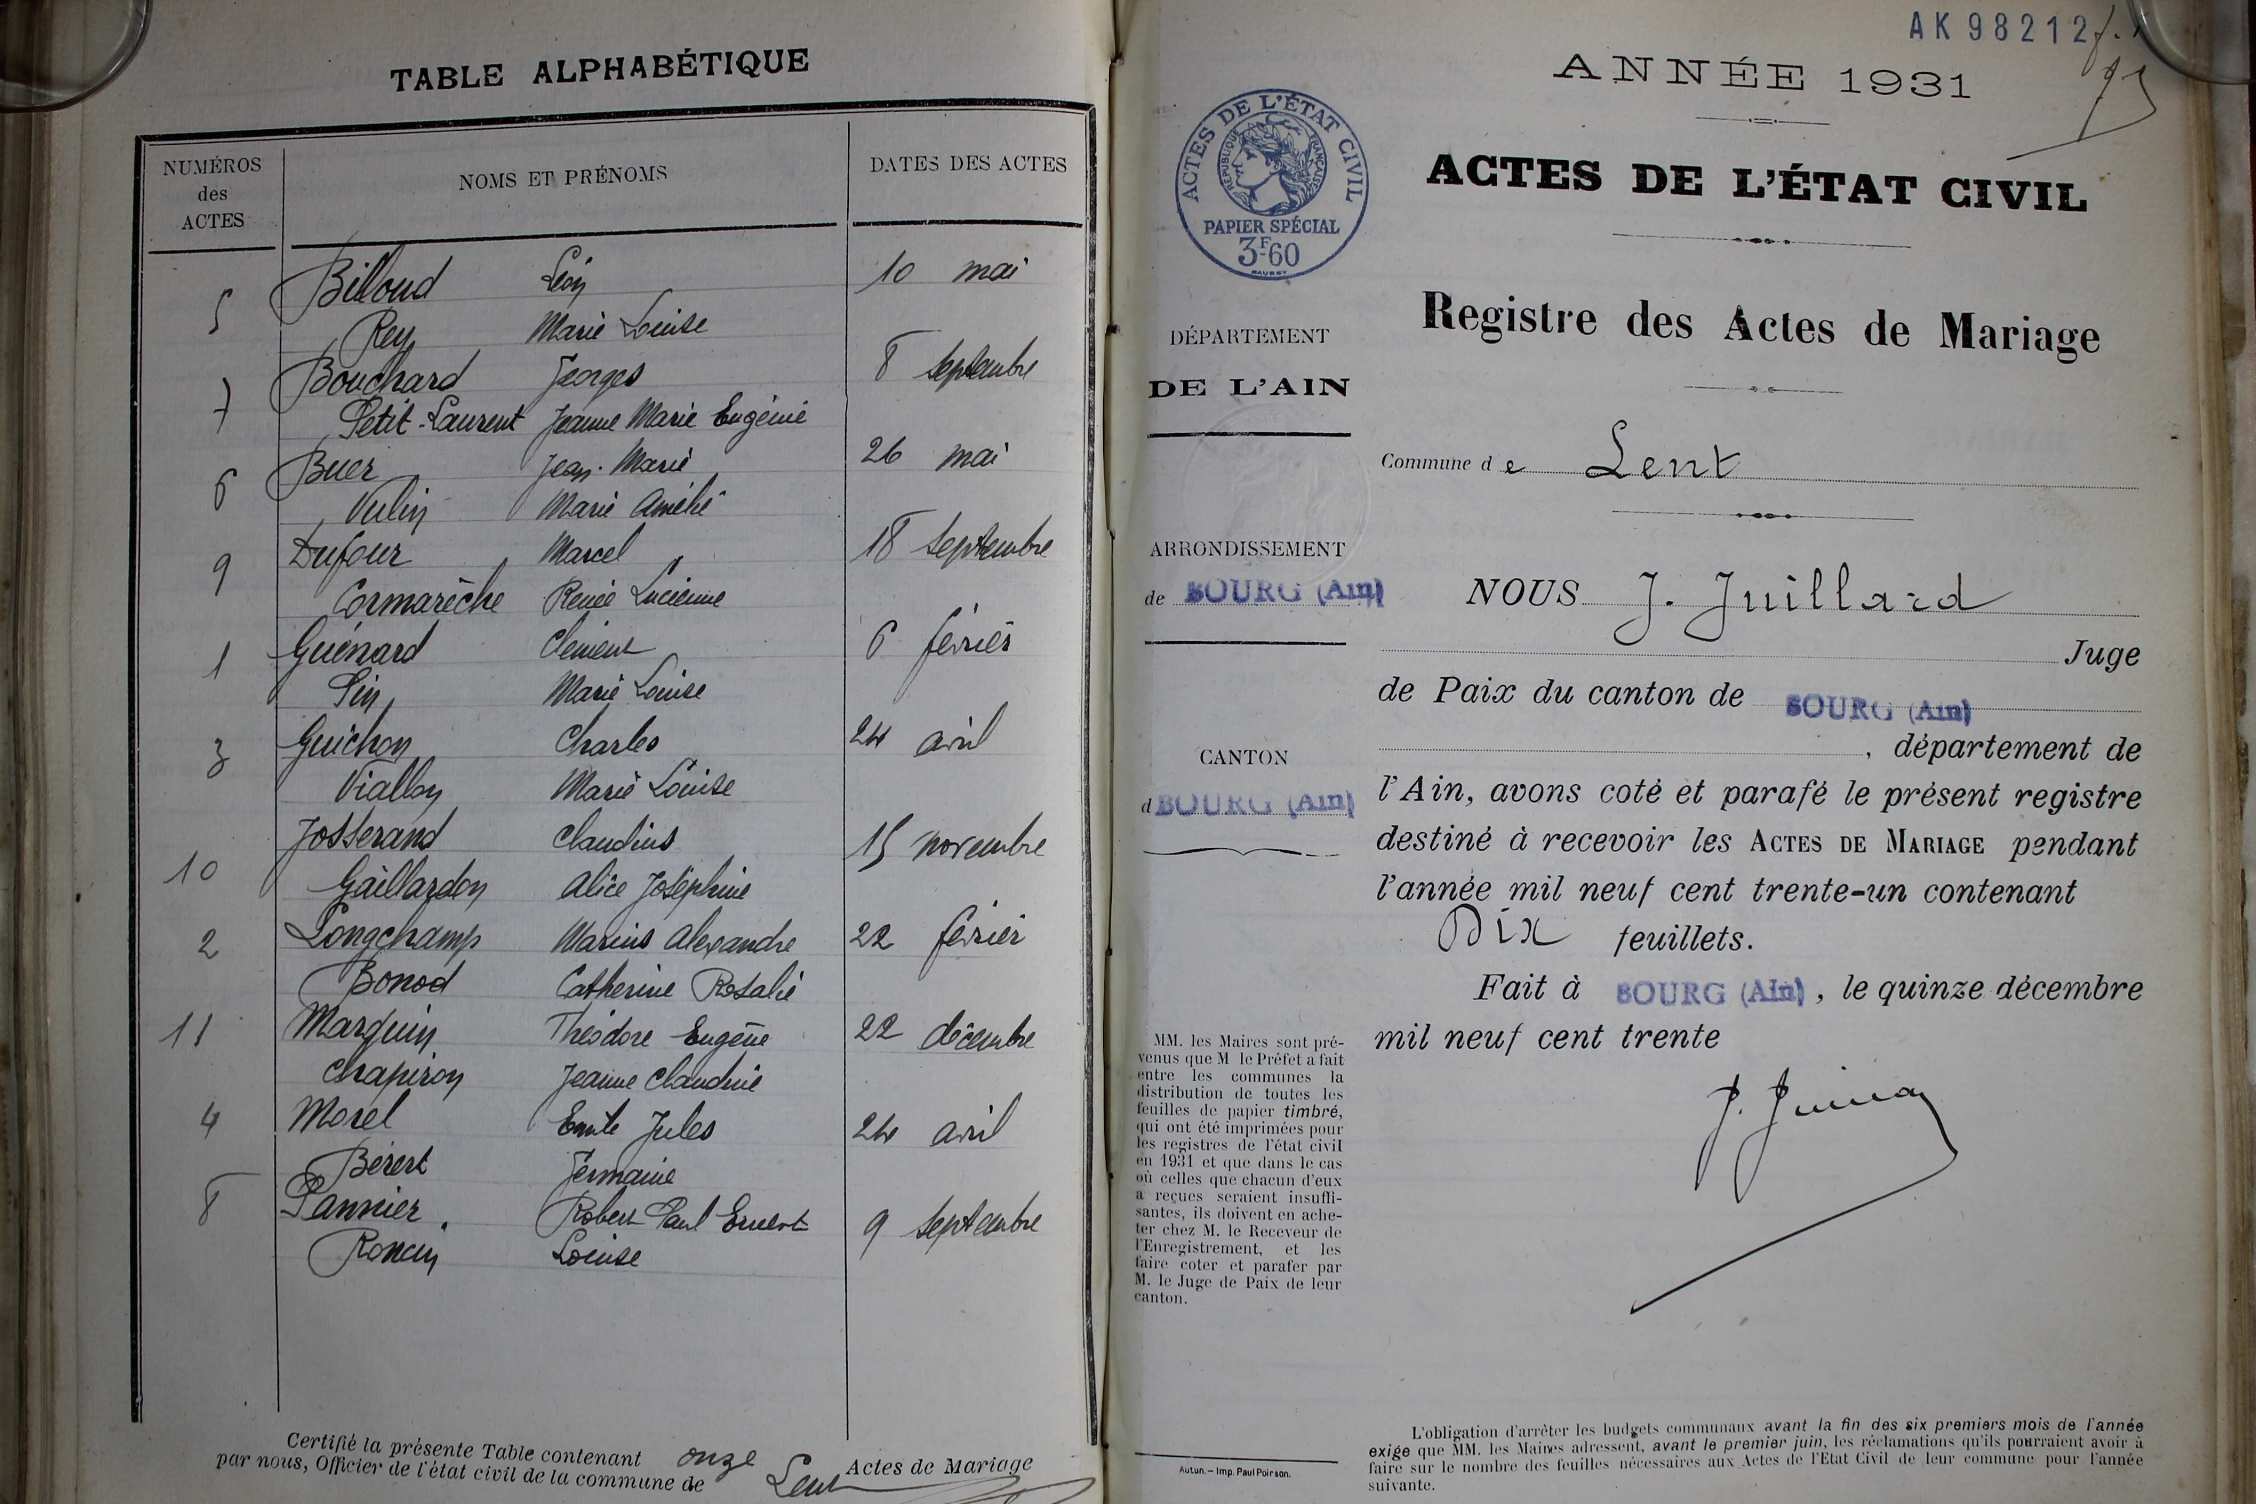 TABLE ALPHABÉTIQUE
NUMÉROS
des
ACTES
NOMS ET PRÉNOMS
DATES DES ACTES
5 Billoud Léon 10 mai
Rey Marie Louise
7 Bouchard Georges 8 septembre
Petit-Laurent Jeanne Marie Eugénie
6 Buer Jean-Marie 26 mai
Vulin Marie Amélie
9 Dufour Marcel 18 septembre
Cormarèche Renée Lucienne
1 Guénard Clément 6 février
Pin Marie Louise
3 Guichon Charles 24 avril
Viallon Marie Louise
10 Josserand Claudius 15 novembre
Gaillardon Alice Joséphine
2 Longchamp Marius Alexandre 22 février
Bonod Catherine Rosalie
11 Marguin Théodore Eugène 22 décembre
Chapiron Jeanne Claudine
4 Morel Emile Jules 24 avril
Bérert Germaine
8 Pannier Robert Paul Ernest 9 septembre
Roncin Louise
Certifié la présente Table contenant onze Actes de Mariage
par nous, Officier de l'état civil de la commune de Lent
AK 98212
ANNÉE 1931
ACTES DE L'ÉTAT CIVIL
RÉPUBLIQUE FRANÇAISE
PAPIER SPÉCIAL
3F-60
ACTES DE L'ÉTAT CIVIL
Registre des Actes de Mariage
DÉPARTEMENT
DE L'AIN
Commune de Lent
ARRONDISSEMENT
de BOURG (Ain)
CANTON
d BOURG (Ain)
NOUS J. Juillard
Juge
de Paix du canton de BOURG (Ain)
, département de
l'Ain, avons coté et parafé le présent registre
destiné à recevoir les ACTES DE MARIAGE pendant
l'année mil neuf cent trente-un contenant
Dix feuillets.
Fait à BOURG (Ain), le quinze décembre
mil neuf cent trente
MM. les Maires sont pré-
venus que M le Préfet a fait
entre les communes la
distribution de toutes les
feuilles de papier timbré,
qui ont été imprimées pour
les registres de l'état civil
en 1931 et que dans le cas
où celles que chacun d'eux
a reçues seraient insuffi-
santes, ils doivent en ache-
ter chez M. le Receveur de
l'Enregistrement, et les
faire coter et parafer par
M. le Juge de Paix de leur
canton.
Autun.— Imp. Paul Poirson.
L'obligation d'arrêter les budgets communaux avant la fin des six premiers mois de l'année
exige que MM. les Maires adressent, avant le premier juin, les réclamations qu'ils pourraient avoir à
faire sur le nombre des feuilles nécessaires aux Actes de l'Etat Civil de leur commune pour l'année
suivante.